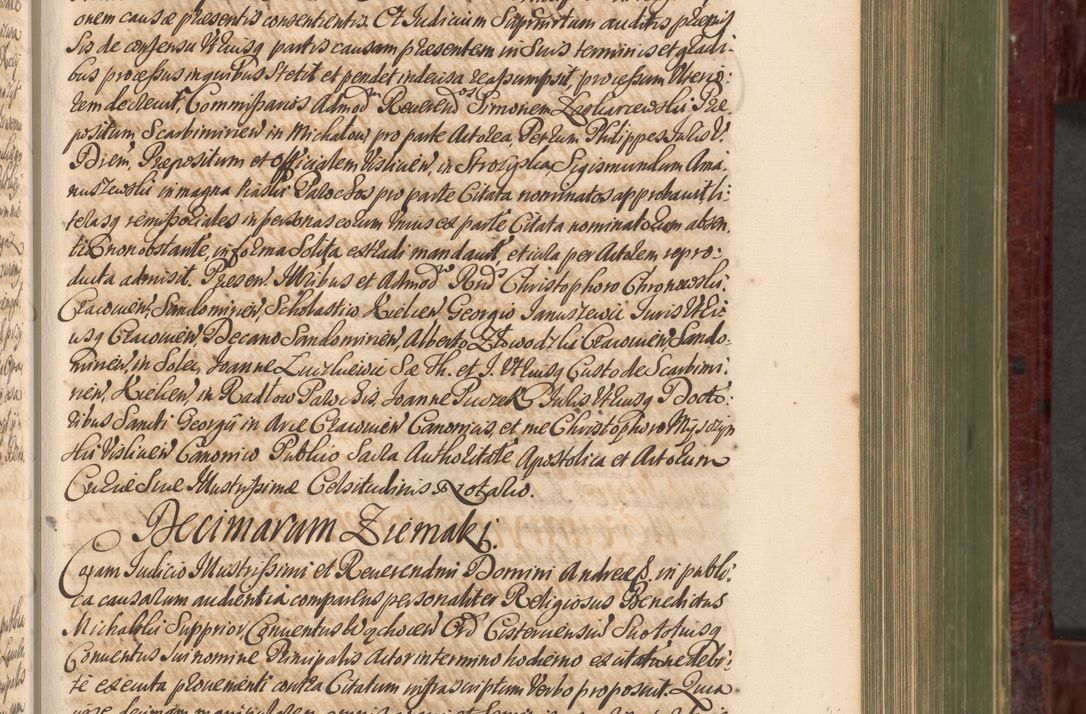 onem causæ præsentis consentientis. Et Judicium Suprascriptum auditis præmis
sis de consensu Utriusq partis causam præsentem in Suis terminis et gradi-
bus processus in quibus Stetit et pendet indecisa reassumpsit, processum Uterio-
rem decrevit, Commissarios Admodm Reverendos Simonem Zagliarzewski Præ-
positum Scarbimirien in Michałow pro parte Actorea, Petrum Philippes Juris U.
Drem. Præpositum et Officialem Vislicien, in Strożyska Sigismundum Ama-
nuszewski in magna Parochos pro parte Citata nominatos approbavit li-
terasq remissoriales in personas eorum Unius ex parte Citata nominatorum absen-
tia non obstante, in forma Solita extradi mandavit, et illa per Actorem repro-
ducta admisit. Præsen. Illribus et Admodm Rndis Christophoro Chronowski,
Cracovien, Sandomirien, Scholastico Kielcen Georgio Januszewic Juris Utri-
usq Cracovien Decano Sandomirien, Alberto Cracovien Sando-
mirien, in Solec, Joanne Sæ Th. et J. Utriusq Custode Scarbimi-
rien, Kielcen in Radłow Parochis, Joanne Puczek Juris Utriusq Docto-
ribus Sancti Georgij in Arce Cracovien Canonicis, et me Christophoro
ski Vislicien Canonico Publico Sacra Authoritate Apostolica et Actorum
Curiæ Suæ Illustrissimæ Celsitudinis Notario.
Decimarum Ziemaki.
Coram Judicio Illustrissimi et Reverendmi Domini Andreæ S. in publi-
ca causarum audientia comparens personaliter Religiosus Benedictus
Michalski Supprior Conventus Wąchocen Ord Cisterciensis Suo totiusq
Conventus Sui nomine Principalis Actor in termino hodierno ex citatione debi-
te executa provenienti contra Citatum infrascriptum Verbo proposuit. Quia